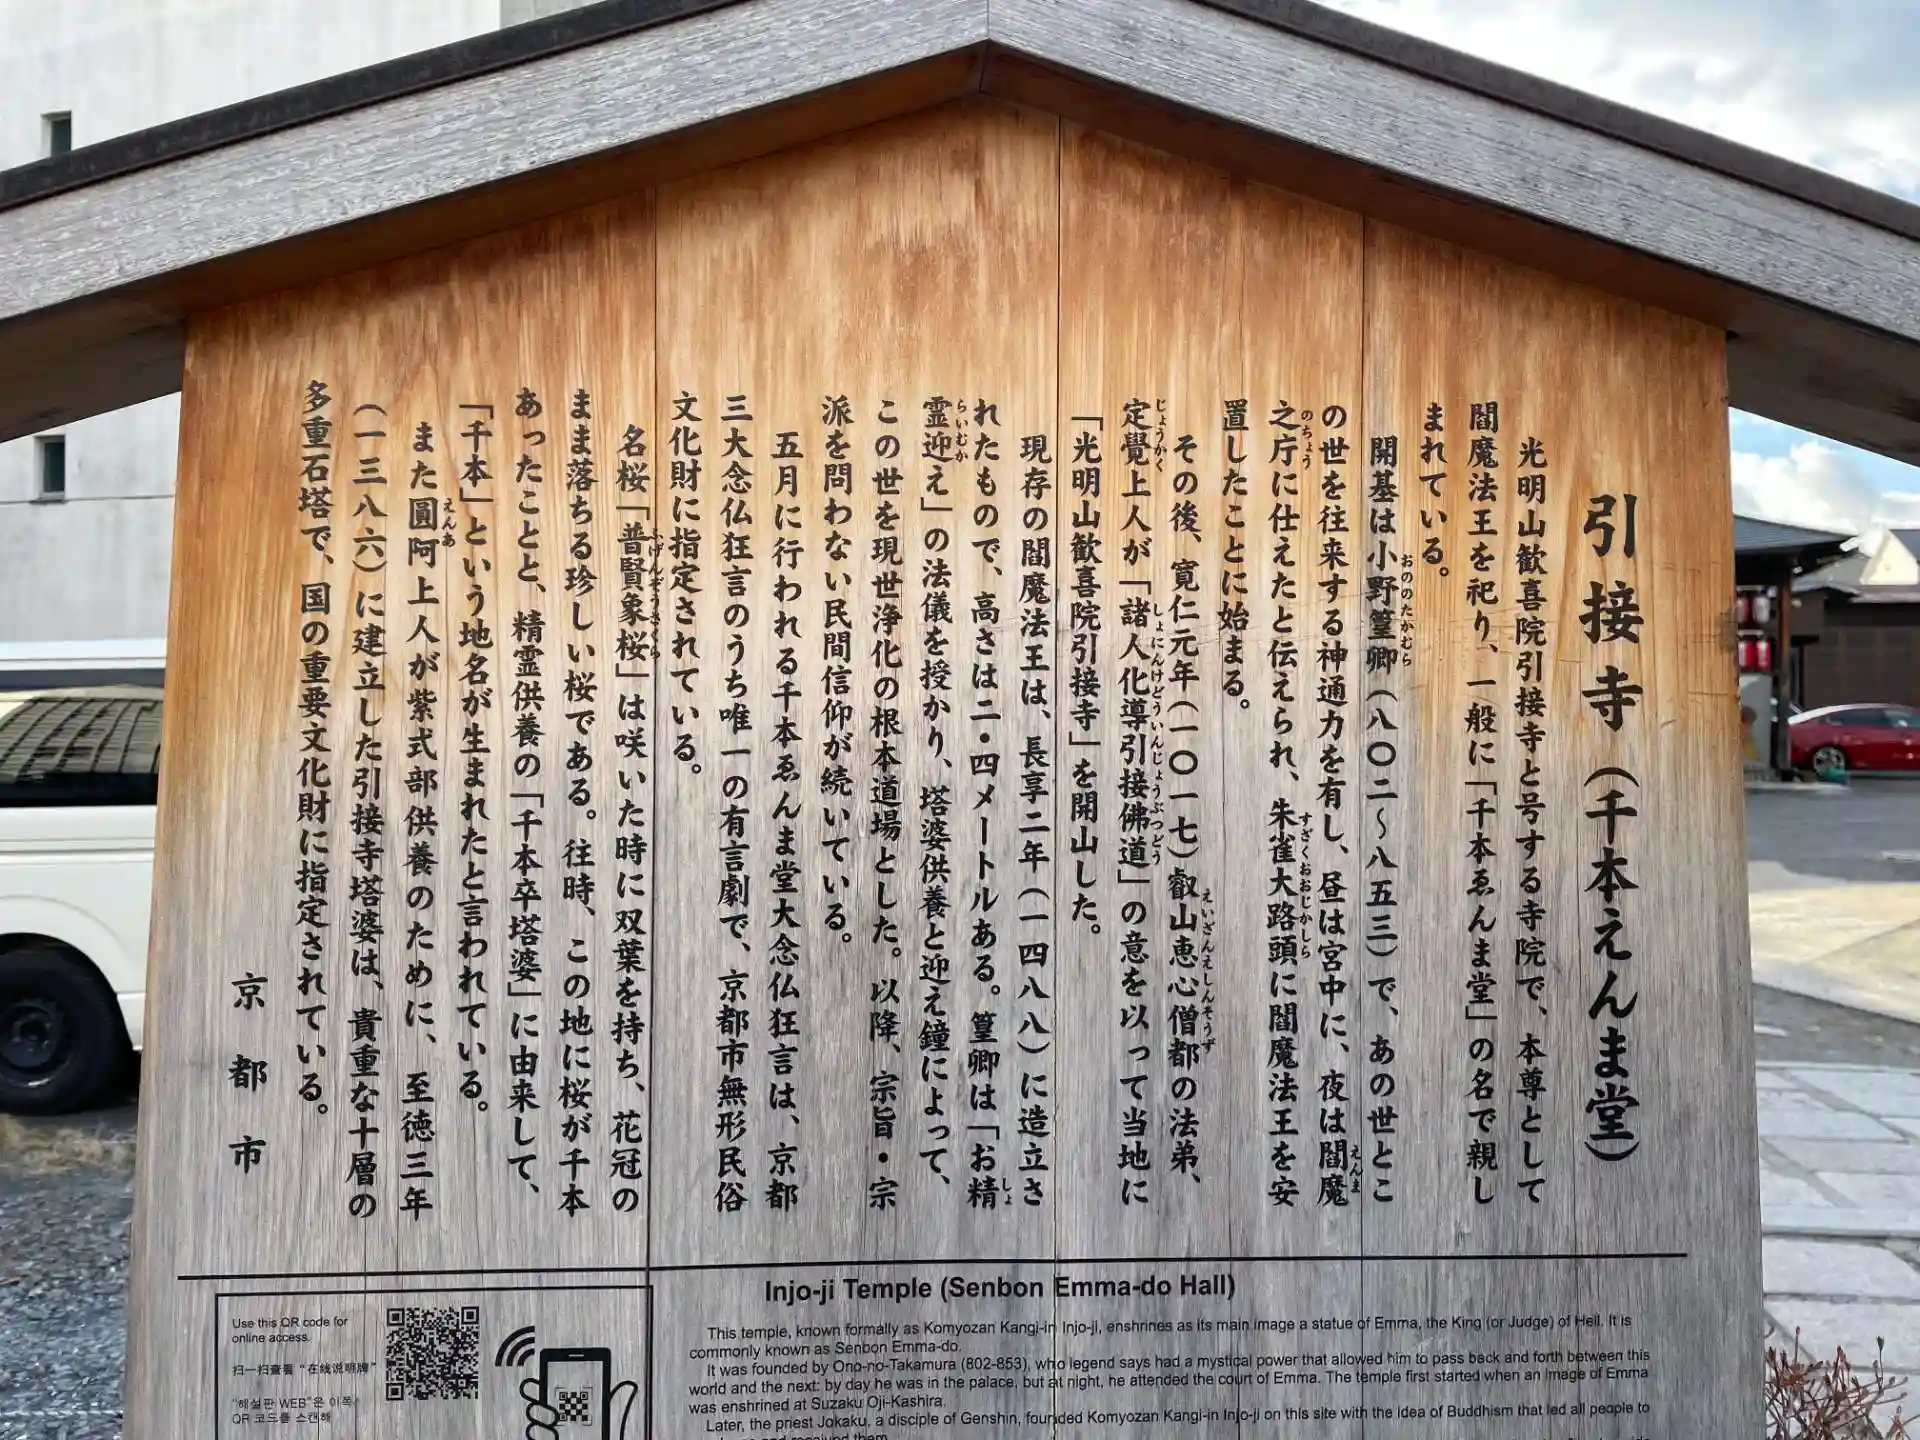 引接寺（千本えんま堂）
光明山歓喜院引接寺と号する寺院で、本尊として
閻魔法王を祀り、一般に「千本ゑんま堂」の名で親し
まれている。
開基は小野篁卿（八〇二〜八五三）で、あの世とこ
おののたかむら
の世を往来する神通力を有し、昼は宮中に、夜は閻魔
えんま
之庁に仕えたと伝えられ、朱雀大路頭に閻魔法王を安
のちょう
すざくおおじかしら
置したことに始まる。
その後、寛仁元年（一〇一七）叡山恵心僧都の法弟、
えいざんえしんそうず
定覺上人が「諸人化導引接佛道」の意を以って当地に
じょうかく
しょにんけどういんじょうぶつどう
「光明山歓喜院引接寺」を開山した。
現存の閻魔法王は、長享二年（一四八八）に造立さ
れたもので、高さは二・四メートルある。篁卿は「お精
しょ
霊迎え」の法儀を授かり、塔婆供養と迎え鐘によって、
らいむか
この世を現世浄化の根本道場とした。以降、宗旨・宗
派を問わない民間信仰が続いている。
五月に行われる千本ゑんま堂大念仏狂言は、京都
三大念仏狂言のうち唯一の有言劇で、京都市無形民俗
文化財に指定されている。
名桜「普賢象桜」は咲いた時に双葉を持ち、花冠の
ふげんぞうさくら
まま落ちる珍しい桜である。往時、この地に桜が千本
あったことと、精霊供養の「千本卒塔婆」に由来して、
「千本」という地名が生まれたと言われている。
また圓阿上人が紫式部供養のために、至徳三年
えんあ
（一三八六）に建立した引接寺塔婆は、貴重な十層の
多重石塔で、国の重要文化財に指定されている。
京都市
Injo-ji Temple (Senbon Emma-do Hall)
This temple, known formally as Komyozan Kangi-in Injo-ji, enshrines as its main image a statue of Emma, the King (or Judge) of Hell. It is
commonly known as Senbon Emma-do.
It was founded by Ono-no-Takamura (802-853), who legend says had a mystical power that allowed him to pass back and forth between this
world and the next: by day he was in the palace, but at night, he attended the court of Emma. The temple first started when an image of Emma
was enshrined at Suzaku Oji-Kashira.
Later, the priest Jokaku, a disciple of Genshin, founded Komyozan Kangi-in Injo-ji on this site with the idea of Buddhism that led all people to
Use this QR code for
online access.
扫一扫查看 "在线说明牌"
"해설판 WEB"은 이쪽
QR 코드를 스캔해